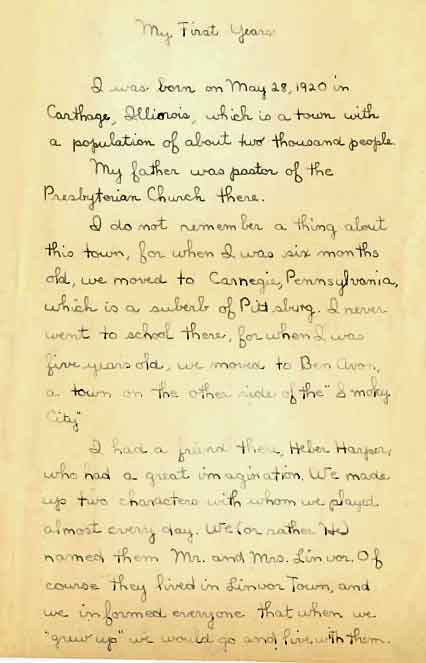 My First Years
I was born on May 28, 1920 in
Carthage, Illionois, which is a town with
a population of about two thousand people.
My father was pastor of the
Presbyterian Church there.
I do not remember a thing about
this town, for when I was six months
old, we moved to Carnegie, Pennsylvania,
which is a suberb of Pittsburg. I never
went to school there, for when I was
five years old, we moved to Ben Avon,
a town on the other side of the "Smoky
City"
I had a friend there, Heber Harper,
who had a great imagination. We made
up two characters with whom we played
almost every day. We (or rather He)
named them Mr. and Mrs. Linvor. Of
course they lived in Linvor Town, and
we informed everyone that when we
"grew up" we would go and live with them.